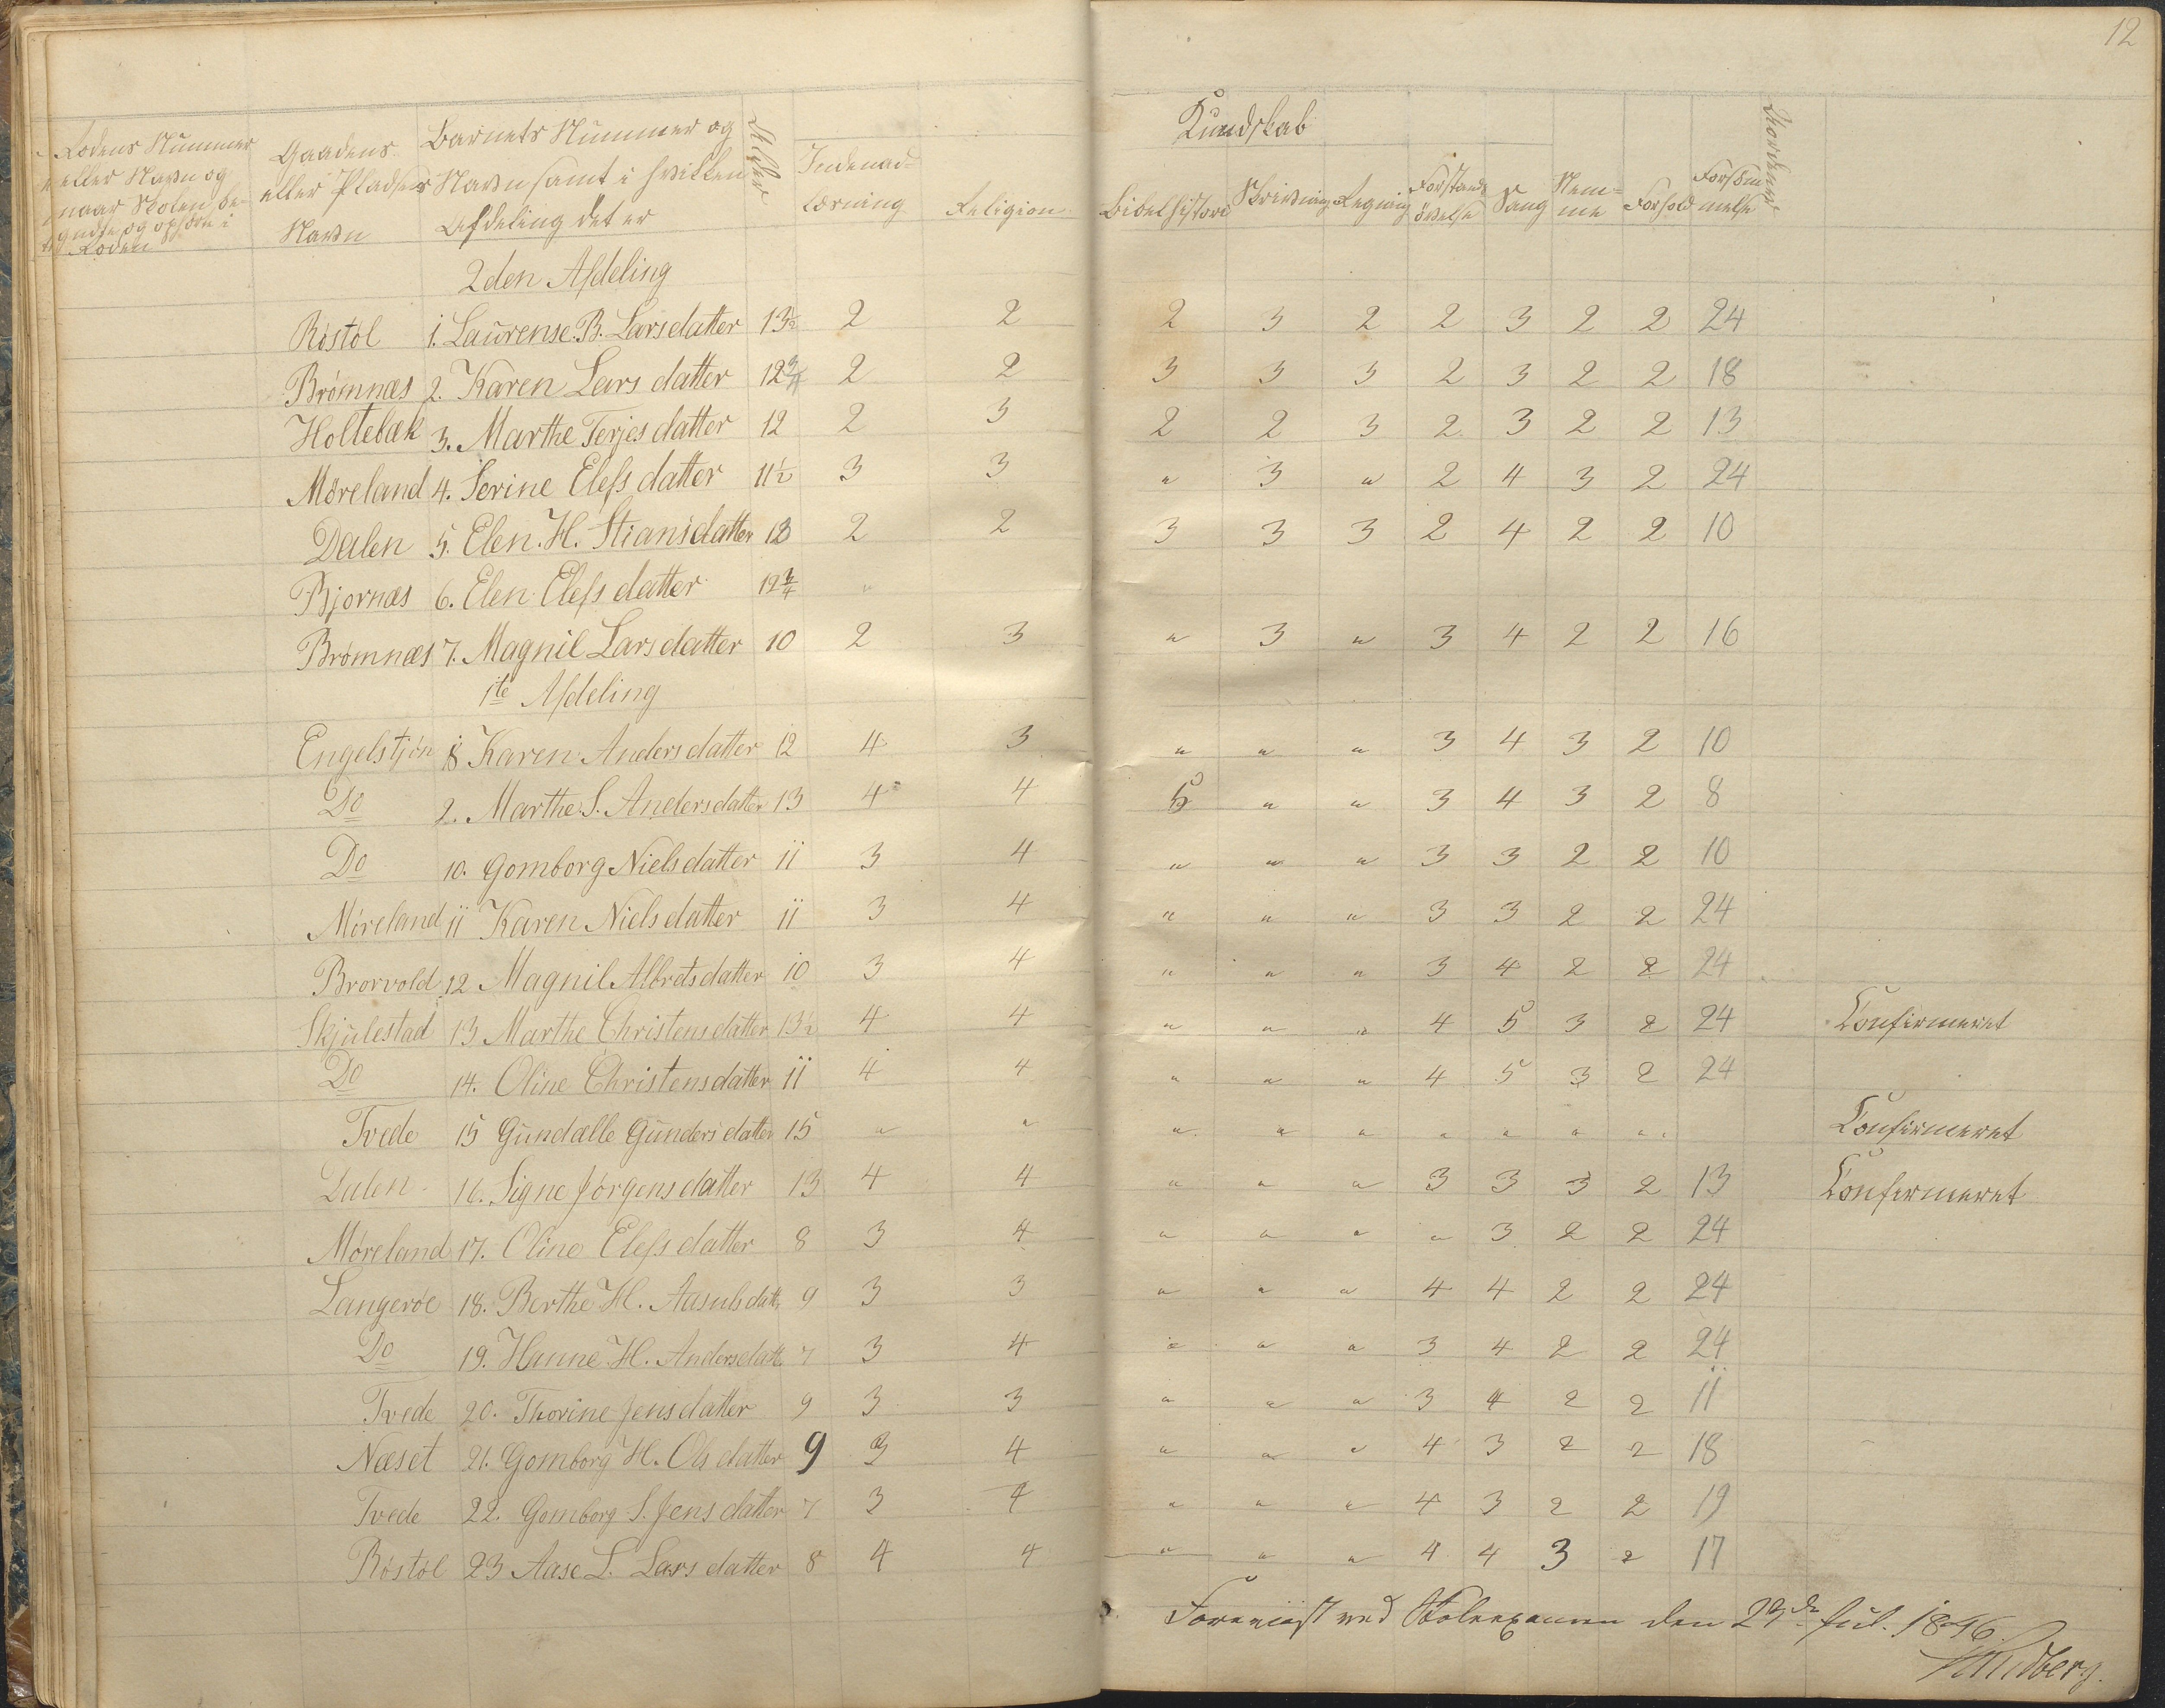 12
Rodens Nummer eller Navn og naar Skolen be- og ophøre i Roden
Gaadens eller Pladsens Navn
Barnets Nummer og Navn samt i hvilken Afdeling det er
Alder
Kundskab
Indenad- læsning
Religion
Bibelhistorie
Skrivning
Regning
Forstands øvelse
Sang
Nem- me
Forhold
Forsøm melse
2den Afdeling
Röstöl 1. Laurense. B. Larsdatter 13½ 2 2 2 3 2 2 3 2 2 24
Brömnæs 2. Karen Lars datter 12¾ 2 2 3 3 3 2 3 2 2 18
Holtebæk 3. Marthe Terjes datter 12 2 3 2 2 3 2 3 2 2 13
Möreland 4. Serine Elefs datter 11½ 3 3 " 3 " 2 4 3 2 24
Dalen 5. Elen. H. Stiansdatter 13 2 2 3 3 3 2 4 2 2 10
Bjornæs 6. Elen Elefs datter 12¾ "
Brømnæs 7. Magnil Lars datter 10 2 3 " 3 " 3 4 2 2 16
1te Afdeling
Engelstjön 8 Karen Anders datter 12 4 3 " " " 3 4 3 2 10
Do 9. Marthe S. Andersdatter 13 4 4 5 " " 3 4 3 2 8
Do 10. Gomborg Niels datter 11 3 4 " " " 3 3 2 2 10
Möreland 11 Karen Niels datter 11 3 4 " " " 3 3 2 2 24
Brorvold 12 Magnil Albretsdatter 10 3 4 " " " 3 4 2 2 24
Skjulestad 13 Marthe Christensdatter 13½ 4 4 " " " 4 5 3 2 24 Confirmeret
Do 14. Oline Christensdatter 11 4 4 " " " 4 5 3 2 24
Tvede 15 Gundælle Gunders datter 15 " " " " " " " " " Confirmeret
Dalen 16. Signe Jörgensdatter 13 4 4 " " " 3 3 3 2 13 Confirmeret
Möreland 17. Oline Elefs datter 8 3 4 " " " " 3 2 2 24
Langeröe 18. Berthe H. Aasulsdatt 9 3 3 " " " 4 4 2 2 24
Do 19. Hanne H. Andersdatt 7 3 4 " " " 3 4 2 2 24
Tvede 20. Thorine Jens datter 9 3 3 " " " 3 4 2 2 11
Næset 21. Gomborg H. Ols datter 9 3 4 " " " 4 3 2 2 18
Tvede 22. Gomborg S. Jens datter 7 3 4 " " " 4 3 2 2 19
Röstöl 23 Aase L. Lars datter 8 4 4 " " " 4 4 3 2 17
Foreviist ved Skoleexamen den 29de Jul. 1846.